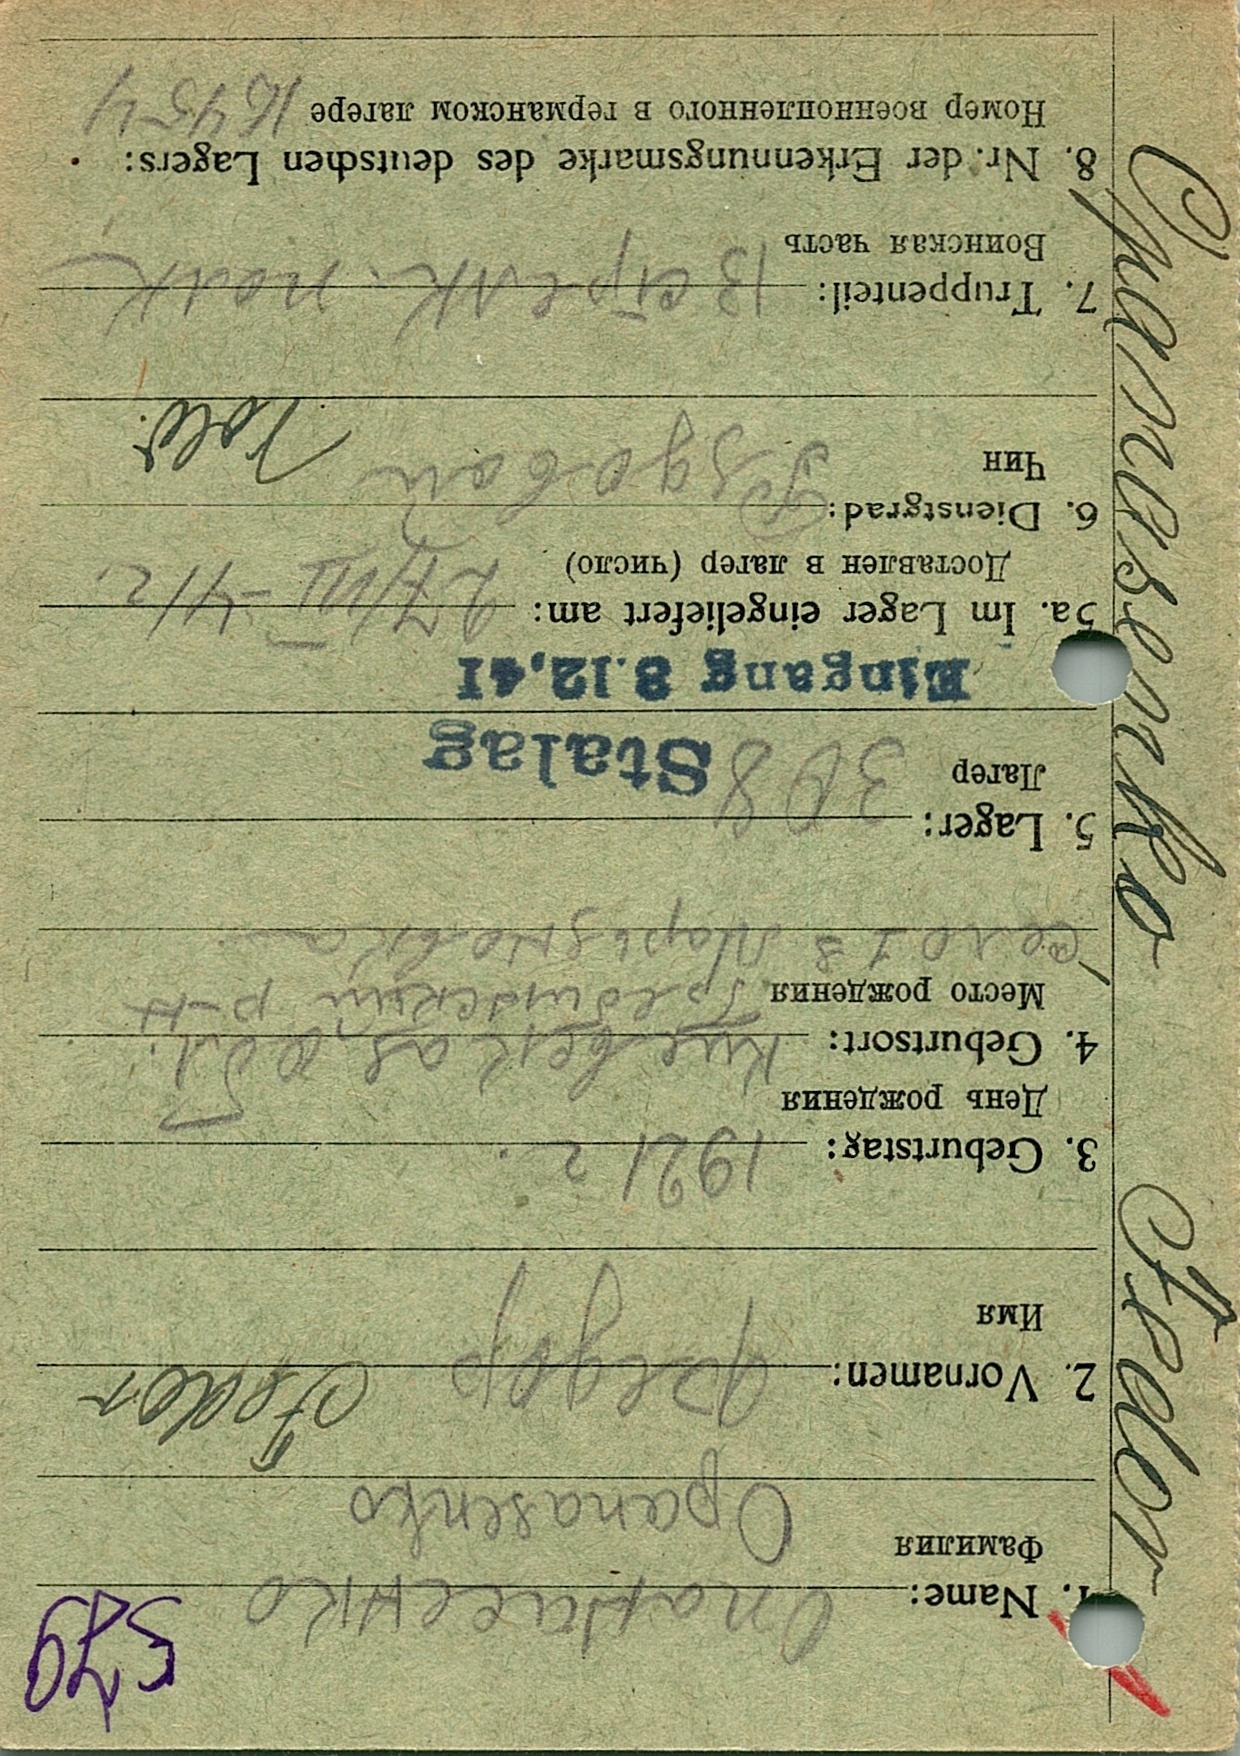 579
1. Name: Опанасенко
Фамилия Opanasenko
2. Vornamen: Федор Fedor
Имя
3. Geburtstag: 1921 г.
День рождения
4. Geburtsort: Киевская, обл.
Место рождения Гребинский р-н
село
5. Lager: 308
Лагер Stalag
Eingang 8.12.41
5a. Im Lager eingeliefert am: 27/VIII-41 г.
Доставлен в лагер (число)
6. Dienstgrad: Рядовой
Чин
7. Truppenteil: стрелк. полк
Воинская часть
8. Nr. der Erkennungsmarke des deutschen Lagers:
Номер военнопленного в германском лагере 16454
Opanasenko Fedor